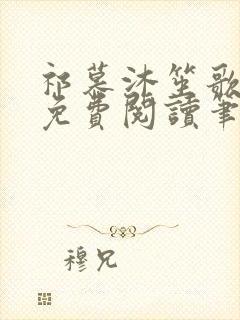 祁慕沐笙歌
免費閱讀筆
穆兄